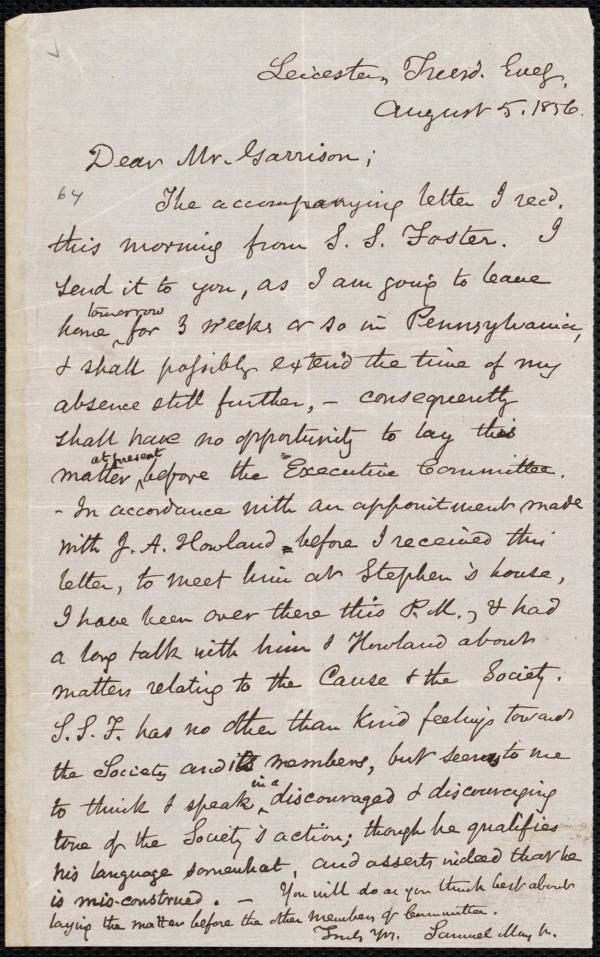 Leicester, Tuesd. Eveg,
August 5. 1856.
Dear Mr. Garrison;
64
The accompanying letter I recd.
this morning from S. S. Foster. I
send it to you, as I am going to leave
tomorrow
home for 3 weeks or so in Pennsylvania,
& shall possibly extend the time of my
absence still further, - consequently
shall have no opportunity to lay this
at present
matter before the Executive Committee.
- In accordance with an appointment made
with J. A. Howland before I received this
letter, to meet him at Stephen's house,
I have been over there this P.M., & had
a long talk with him & Howland about
matters relating to the Cause & the Society.
S.S.F. has no other than kind feelings towards
the Society and its members, but seems to me
in a
to think & speak discouraged & discouraging
tone of the Society's action; though he qualifies
his language somewhat, and asserts indeed that he
is mis-construed. - You will do as you think best about
laying the matter before the other members of Committee.
Truly Yrs. Samuel May Jr.